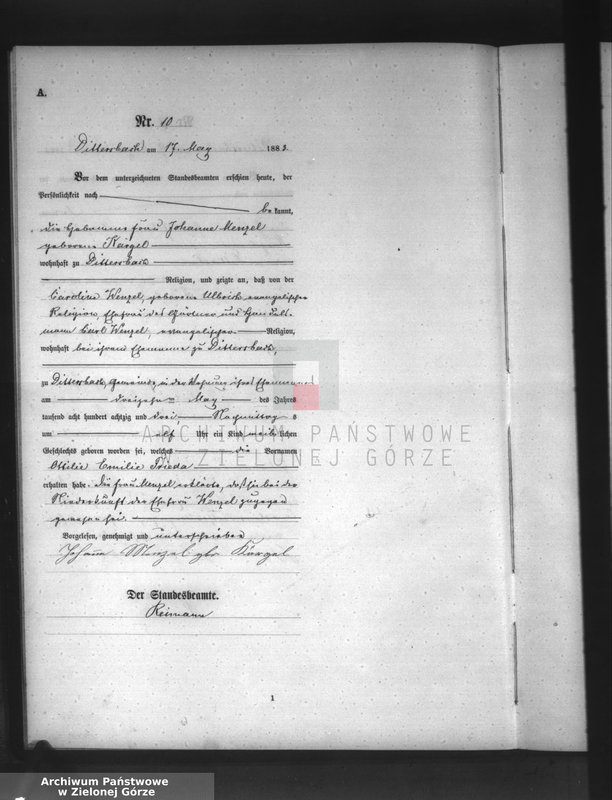 A.
Nr. 10
Dittersbach am 17. May 1883.
Vor dem unterzeichneten Standesbeamten erschien heute, der
Persönlichkeit nach
bekannt,
die Hebamme Frau Johanne Menzel
geborene Kärgel
wohnhaft zu Dittersbach
Religion, und zeigte an, daß von der
Caroline Wenzel, geborene Ulbrich evangelischer
Religion, Ehefrau des Gärtner und Handels-
mann Carl Wenzel, evangelischer Religion,
wohnhaft bei ihrem Ehemanne zu Dittersbach,
zu Dittersbach, in der Wohnung ihres Ehemannes
am dreizehn May des Jahres
tausend acht hundert achtzig und drei, Nachmittags
um elf Uhr ein Kind weiblichen
Geschlechts geboren worden sei, welches die Vornamen
Ottilie Emilie Frieda
erhalten habe. Die Frau Menzel erklärte, daß sie bei der
Niederkunft der Ehefrau Wenzel zugegen
gewesen sei.
Vorgelesen, genehmigt und unterschrieben
Johann Menzel gbr Kärgel
Der Standesbeamte.
Reimann
1
ARCHIWUM PAŃSTWOWE
W ZIELONEJ GÓRZE
Archiwum Państwowe
w Zielonej Górze